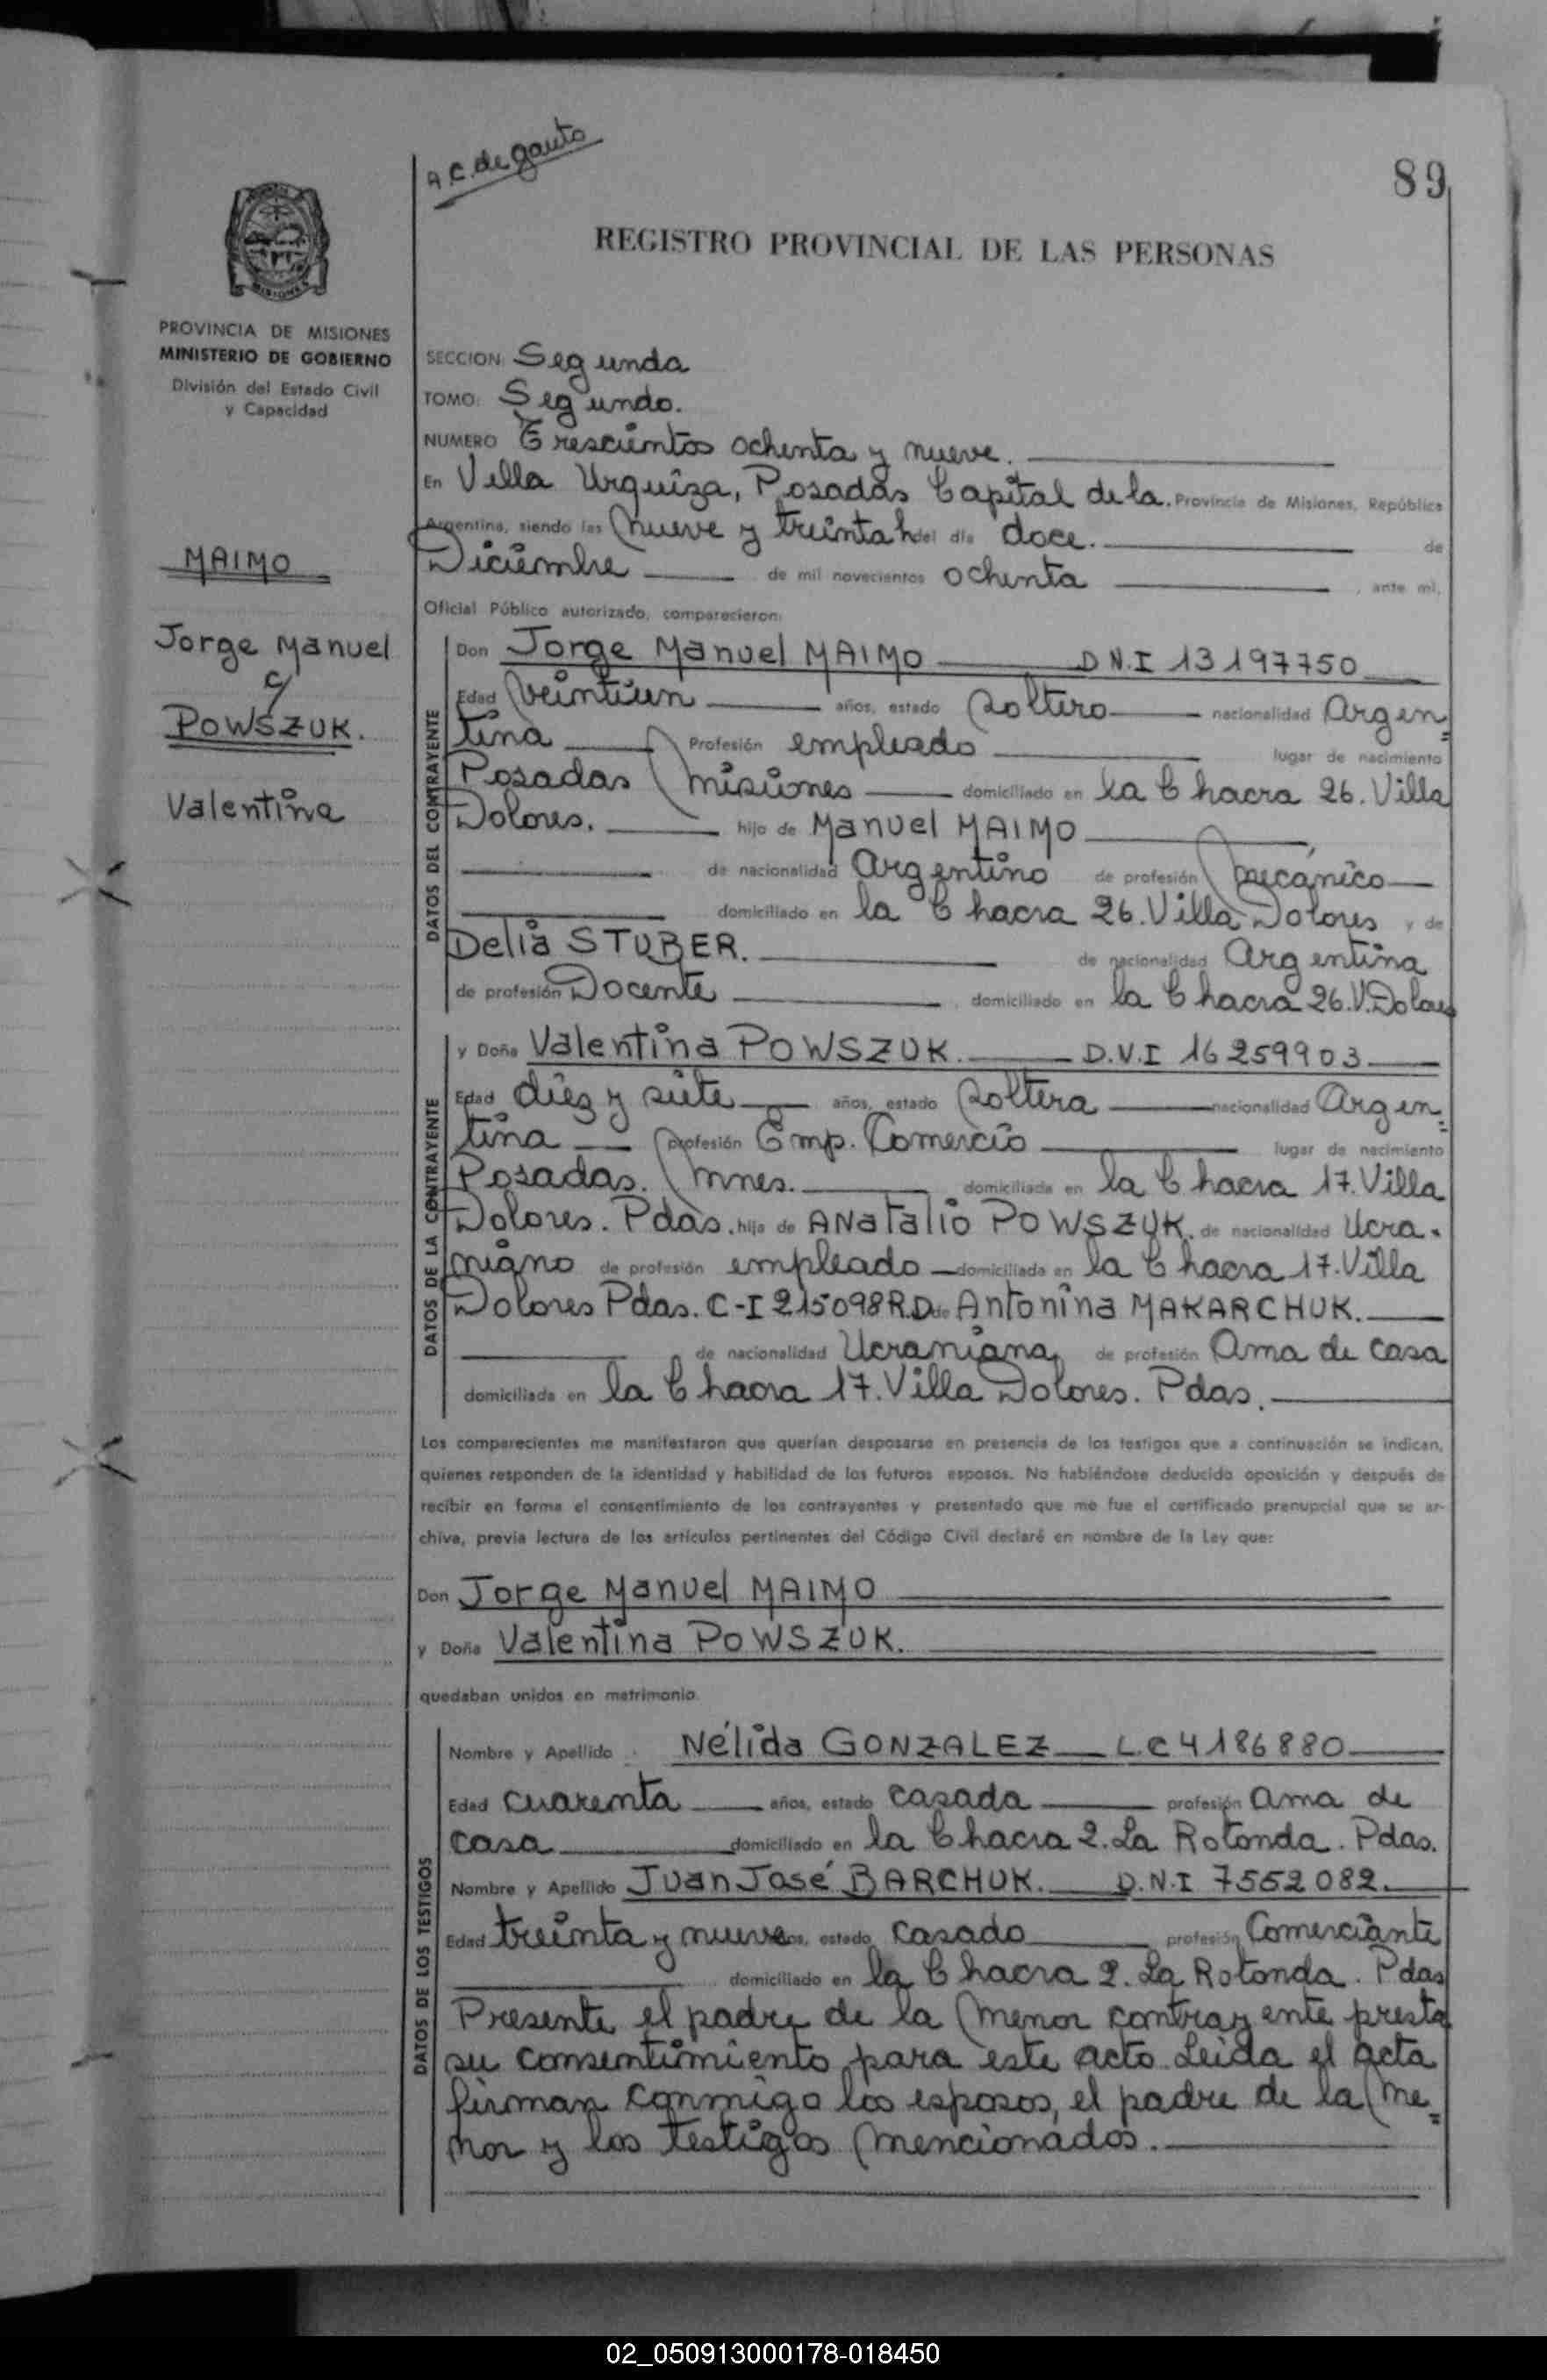 A.C. de Gauto
89
REGISTRO PROVINCIAL DE LAS PERSONAS
MISIONES
PROVINCIA DE MISIONES
MINISTERIO DE GOBIERNO
División del Estado Civil
y Capacidad
MAIMO
Jorge Manuel
c/
POWSZUK.
Valentina
SECCION: Segunda
TOMO: Segundo.
NUMERO Trescientos ochenta y nueve.
En Villa Urquiza, Posadas Capital de la. Provincia de Misiones, República
Argentina, siendo las nueve y treinta h del día doce. de
Diciembre de mil novecientos ochenta , ante mí,
Oficial Público autorizado, comparecieron:
DATOS DEL CONTRAYENTE
Don Jorge Manuel MAIMO D N.I 13197750
Edad veintiun años, estado soltero nacionalidad Argen=
tina Profesión empleado lugar de nacimiento
Posadas Misiones domiciliado en la Chacra 26. Villa
Dolores. hijo de Manuel MAIMO
de nacionalidad Argentino de profesión mecánico
domiciliado en la Chacra 26. Villa Dolores y de
Delia STUBER. de nacionalidad Argentina
de profesión Docente domiciliada en la Chacra 26. V. Dolores
DATOS DE LA CONTRAYENTE
y Doña Valentina POWSZUK. D.N.I 16259903
Edad diez y siete años, estado soltera nacionalidad Argen=
tina profesión Emp. Comercio lugar de nacimiento
Posadas. Mnes. domiciliada en la Chacra 17. Villa
Dolores. Pdas. hija de ANatalio POWSZUK. de nacionalidad Ucra-
niano de profesión empleado domiciliado en la Chacra 17. Villa
Dolores Pdas. C-I 215098 R.D. de Antonina MAKARCHUK.
de nacionalidad Ucraniana de profesión Ama de casa
domiciliada en la Chacra 17. Villa Dolores. Pdas.
Los comparecientes me manifestaron que querían desposarse en presencia de los testigos que a continuación se indican,
quienes responden de la identidad y habilidad de los futuros esposos. No habiéndose deducido oposición y después de
recibir en forma el consentimiento de los contrayentes y presentado que me fue el certificado prenupcial que se ar-
chiva, previa lectura de los artículos pertinentes del Código Civil declaré en nombre de la Ley que:
Don Jorge Manuel MAIMO
y Doña Valentina POWSZUK.
quedaban unidos en matrimonio.
DATOS DE LOS TESTIGOS
Nombre y Apellido Nélida GONZALEZ L.C 4186880
Edad cuarenta años, estado casada profesión ama de
casa domiciliado en la Chacra 2. La Rotonda. Pdas.
Nombre y Apellido Juan José BARCHUK. D.N.I 7552082.
Edad treinta y nueve años, estado casado profesión Comerciante
domiciliado en la Chacra 2. La Rotonda. Pdas
Presente el padre de la menor contrayente presta
su consentimiento para este acto. Leida el acta
firman conmigo los esposos, el padre de la me=
nor y los testigos mencionados.
02_050913000178-018450